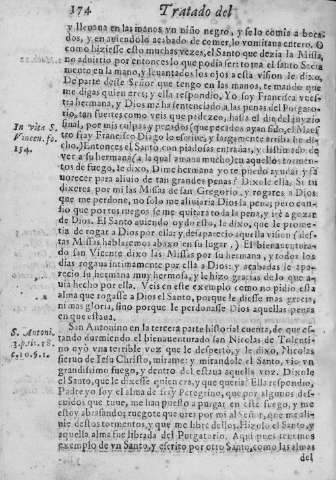 374 Tratado del
y lleuaua en las manos vn niño negro, y se lo comia a boca-
dos, y en auiendolo acabado de comer, lo vomitaua entero. O
como hiziesse esto muchas vezes, el Santo que dezia la Missa,
no aduirtio por entonces lo que podia ser: tomà el santo Sacra
mento en la mano, y leuantados los ojos a esta vision le dixo,
De parte deste Señor que tengo en las manos, te mando que
me digas quien eres, y ella respondio, Yo soy Francisca vues-
tra hermana, y Dios me ha sentenciado a las penas del Purgato-
rio, tan fuertes como veis que padezco, hasta el dia del juyzio
final, por mis culpas y pecados
tro fray Francisco Diago lo escriue, y largamente arriba he di-
cho,) Entonces el Santo con piadosas entrañas, y lastimado de
ver a su hermana (a la qual amaua mucho) en aquellos tormen-
tos de fuego, le dixo, Dime hermana yo te puedo ayudar y fa
uorecer para aliuio de tan grandes penas? Dixole ella, Si tu
dixeres por mi las Missas de san Gregorio, y rogares a Dios
que me perdone, no solo me aliuiaria Dios la pena, pero con-
fio que por tus ruegos se me quitarà toda la pena, y irè a gozar
de Dios. El Santo auiendo oydo esto, le dixo, que le prome-
tia de rogar a Dios por ella: y desaparecio aquella vision (des-
tas Missas hablaremos abaxo en su lugar.) El bienauentura-
do san Vicente dixo las Missas por su hermana, y todos los
dias rogaua intimamente por ella a Dios: y acabadas le apa-
recio su hermana muy hermosa, y le hizo gracias de lo que a-
uia hecho por ella. Veis en este exemplo como no pidio esta
alma que rogasse a Dios el Santo, porque le diesse mas gracia,
ni mas gloria, sino porque le perdonasse Dios aquellas penas
en que estaua.
In vita S.
Vincen. fo.
154.
San Antonino en la tercera parte historial cuenta, de que es-
tando durmiendo el bienauenturado san Nicolas de Tolenti-
no oyò vna terrible voz que le despertò, y le dixo, Nicolas
sieruo de Iesu Christo, mirame: y mirandole el Santo, vio vn
grandissimo fuego, y dentro del estaua aquella voz. Dixole
el Santo, que le dixesse quien era, y que queria? Ella respondio,
Padre yo soy el alma de fray Peregrino, que por algunos des-
cuidos que tuue, me han puesto a purgar en este fuego, y me
estoy abrasando; ruegote que ores por mi al Señor, que me ali-
uie destos tormentos, y que me libre dellos. Hizolo el Santo, y
aquella alma fue librada del Purgatorio. Aqui pues tenemos
exemplo de vn Santo, y escrito por otro Santo, como las almas
S. Antoni.
3.p.tit.
del